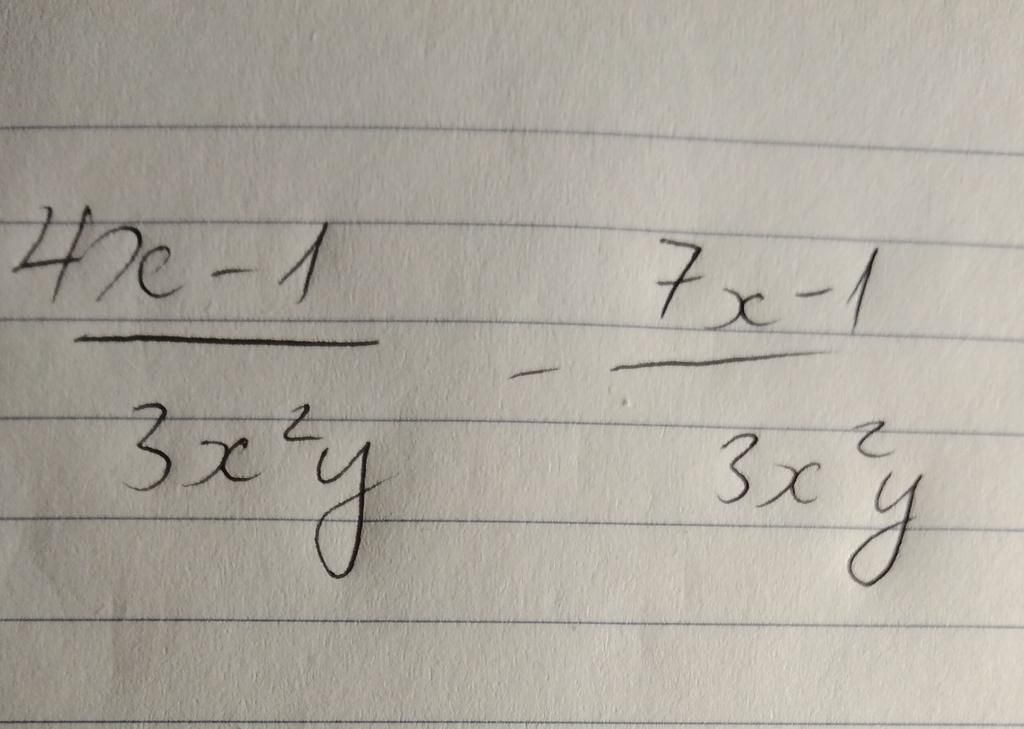 4x - 1 / 3x²y - 7x - 1 / 3x²y